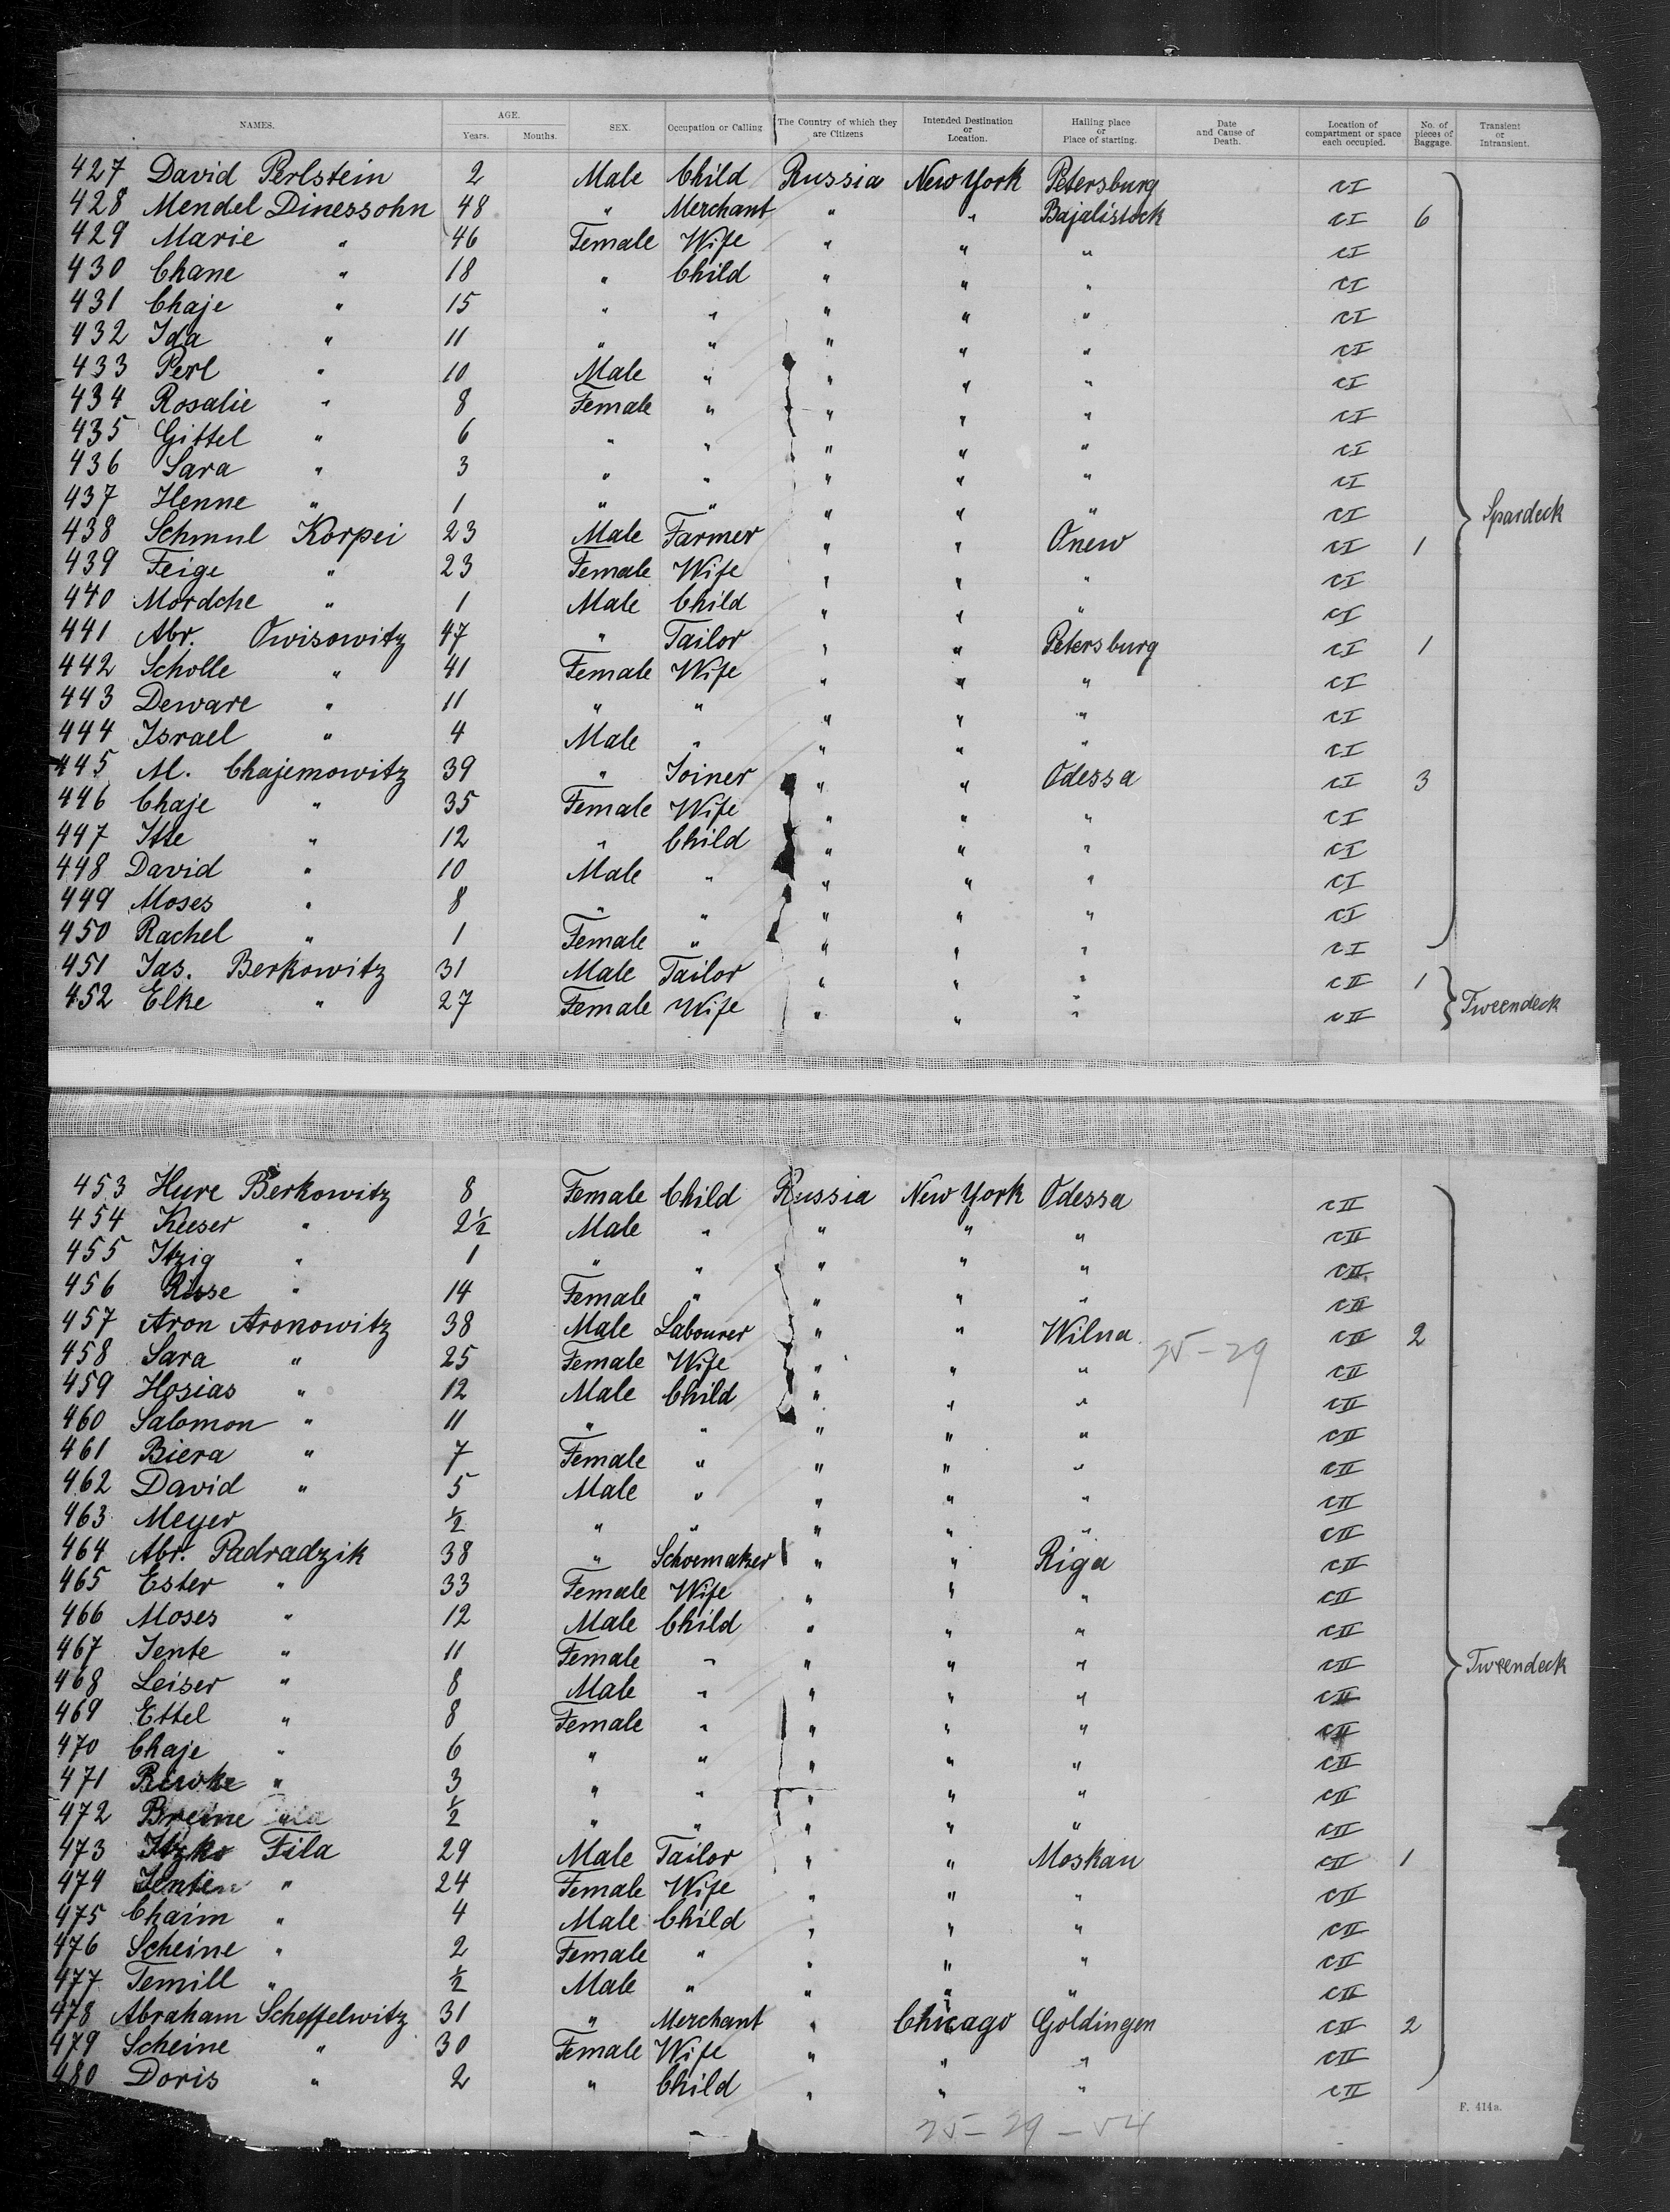 NAMES. AGE. Years. Months. SEX. Occupation or Calling The Country of which they are Citizens Intended Destination or Location. Hailing place or Place of starting. Date and Cause of Death. Location of compartment or space each occupied. No. of pieces of Baggage. Transient or Intransient.
427 David Perlstein 2 Male Child Russia New York Petersburg c I
428 Mendel Dinessohn 48 " Merchant " " Bajalistock c I 6
429 Marie " 46 Female Wife " " " c I
430 Chane " 18 " Child " " " c I
431 Chaje " 15 " " " " " c I
432 Ida " 11 " " " " " c I
433 Perl " 10 Male " " " " c I
434 Rosalie " 8 Female " " " " c I
435 Gittel " 6 " " " " " c I
436 Sara " 3 " " " " " c I
437 Henne " 1 " " " " " c I
Spardeck
438 Schmul Korpei 23 Male Farmer " " Onew c I 1
439 Feige " 23 Female Wife " " " c I
440 Mordche " 1 Male Child " " " c I
441 Abr. Owisowitz 47 " Tailor " " Petersburg c I 1
442 Scholle " 41 Female Wife " " " c I
443 Deware " 11 " " " " " c I
444 Israel " 4 Male " " " " c I
445 M. Chajemowitz 39 " Joiner " " Odessa c I 3
446 Chaje " 35 Female Wife " " " c I
447 Itte " 12 " Child " " " c I
448 David " 10 Male " " " " c I
449 Moses " 8 " " " " " c I
450 Rachel " 1 Female " " " " c I
451 Jas. Berkowitz 31 Male Tailor " " " c II 1
452 Elke " 27 Female Wife " " " c II
Tweendeck
453 Hure Berkowitz 8 Female Child Russia New York Odessa c II
454 Keeser " 2½ Male " " " " c II
455 Itzig " 1 " " " " " c II
456 Risse " 14 Female " " " " c II
457 Aron Aronowitz 38 Male Labourer " " Wilna c II 2
25-29
458 Sara " 25 Female Wife " " " c II
459 Hosias " 12 Male Child " " " c II
460 Salomon " 11 " " " " " c II
461 Biera " 7 Female " " " " c II
462 David " 5 Male " " " " c II
463 Meyer ½ " " " " " c II
464 Abr. Padradzik 38 " Schoemaker " " Riga c II
465 Ester " 33 Female Wife " " " c II
466 Moses " 12 Male Child " " " c II
467 Jente " 11 Female " " " " c II
Tweendeck
468 Leiser " 8 Male " " " " c II
469 Ettel " 8 Female " " " " c II
470 Chaje " 6 " " " " " c II
471 Riwke " 3 " " " " " c II
472 Breine " ½ " " " " " c II
473 Itzko Fila 29 Male Tailor " " Moskau c II 1
474 Jenten " 24 Female Wife " " " c II
475 Chaim " 4 Male Child " " " c II
476 Scheine " 2 Female " " " " c II
477 Temill " ½ Male " " " " c II
478 Abraham Scheffelwitz 31 " Merchant " Chicago Goldingen c II 2
479 Scheine " 30 Female Wife " " " c II
480 Doris " 2 " Child " " " c II
F. 414a.
25-29-54